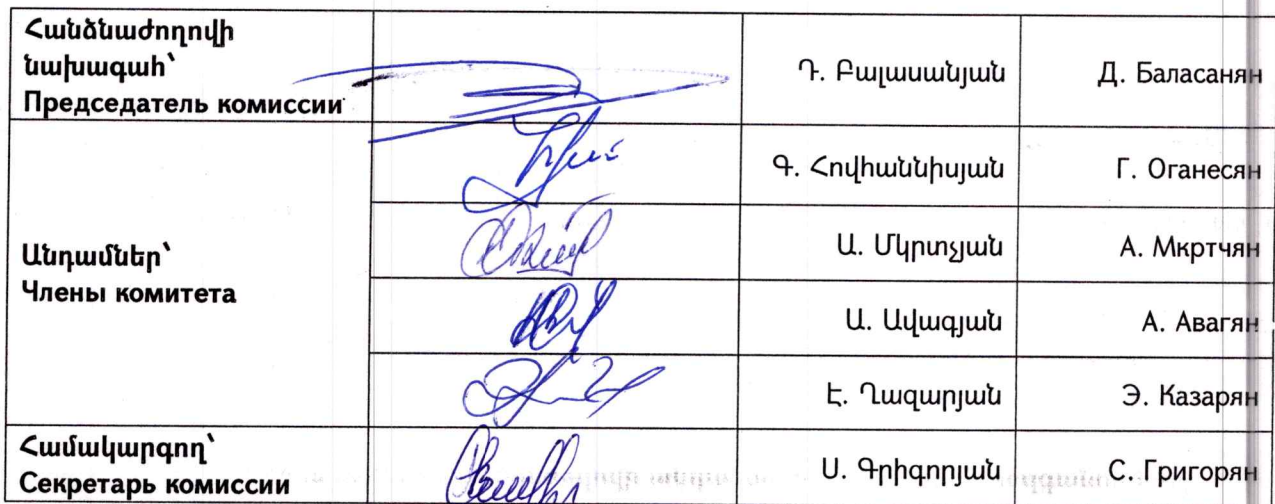 Հանձնաժողովի
նախագահ՝
Председатель комиссии
Դ. Բալասանյան
Д. Баласанян
Գ. Հովհաննիսյան
Г. Оганесян
Անդամներ՝
Члены комитета
Ա. Մկրտչյան
А. Мкртчян
Ա. Ավագյան
А. Авагян
Է. Ղազարյան
Э. Казарян
Համակարգող՝
Секретарь комиссии
Ս. Գրիգորյան
С. Григорян